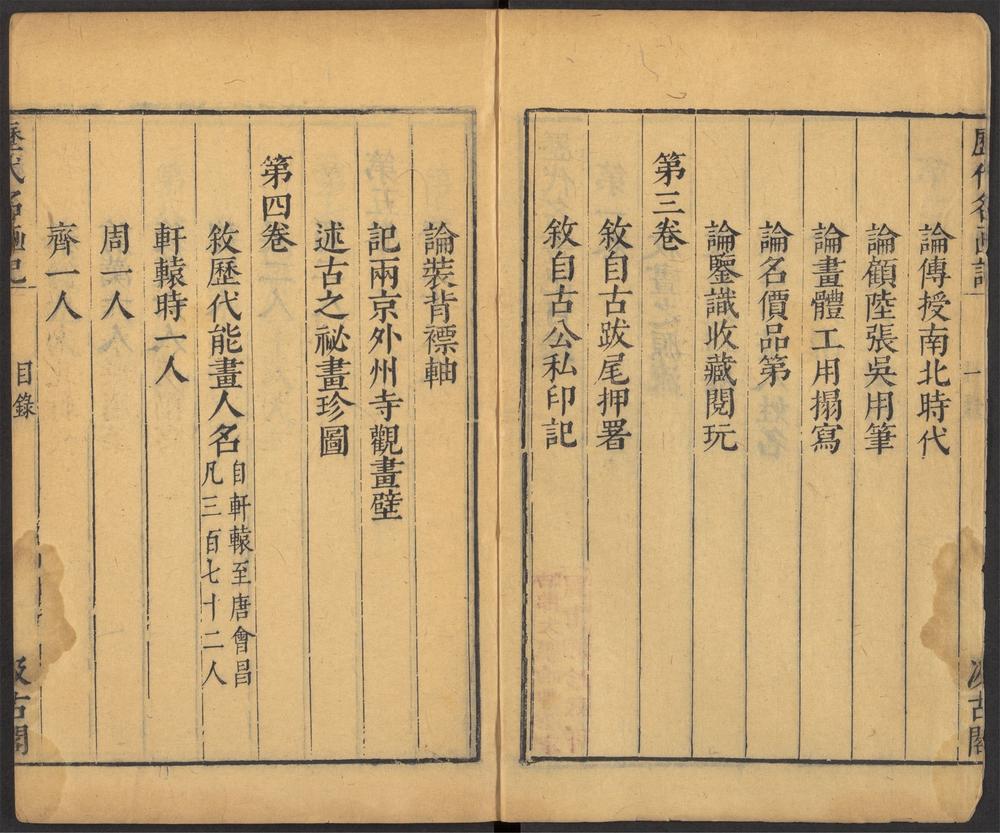 歷代名畫記
一
汲古閣
論傳授南北時代
論顧陸張吳用筆
論畫體工用搨寫
論名價品第
論鑒識收藏閱玩
第三卷
敘自古跋尾押署
敘自古公私印記
論裝背褾軸
記兩京外州寺觀畫壁
述古之祕畫珍圖
第四卷
敘歷代能畫人名自軒轅至唐會昌
凡三百七十二人
軒轅時一人
周一人
齊一人
歷代名畫記
目錄
汲古閣